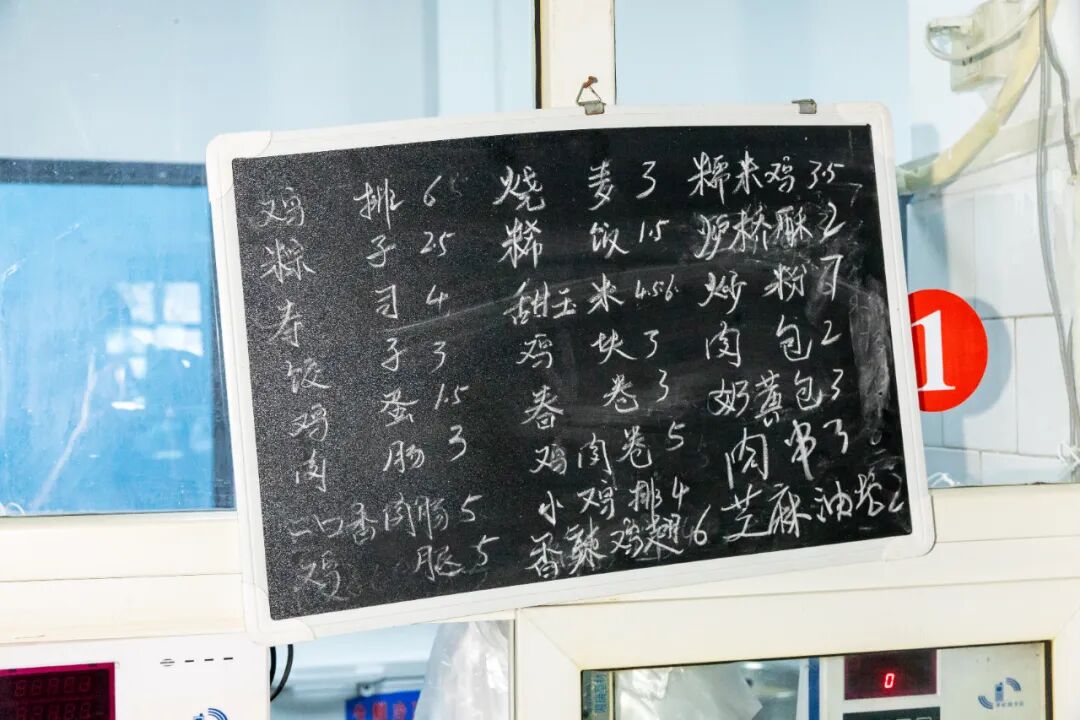 鸡排 6 烧麦 3 糯米鸡 3.5
粽子 25 糯饭 1.5 桥酥 2
寿司 4 甜玉米 4.5 6 炒粉 7
饺子 3 鸡块 3 肉包 2
鸡蛋 1.5 春卷 3 奶黄包 3
肉肠 3 鸡肉卷 5 肉串 3
一口香肉肠 5 小鸡排 4 芝麻油 2
鸡腿 5 香辣鸡翅 6
1
0